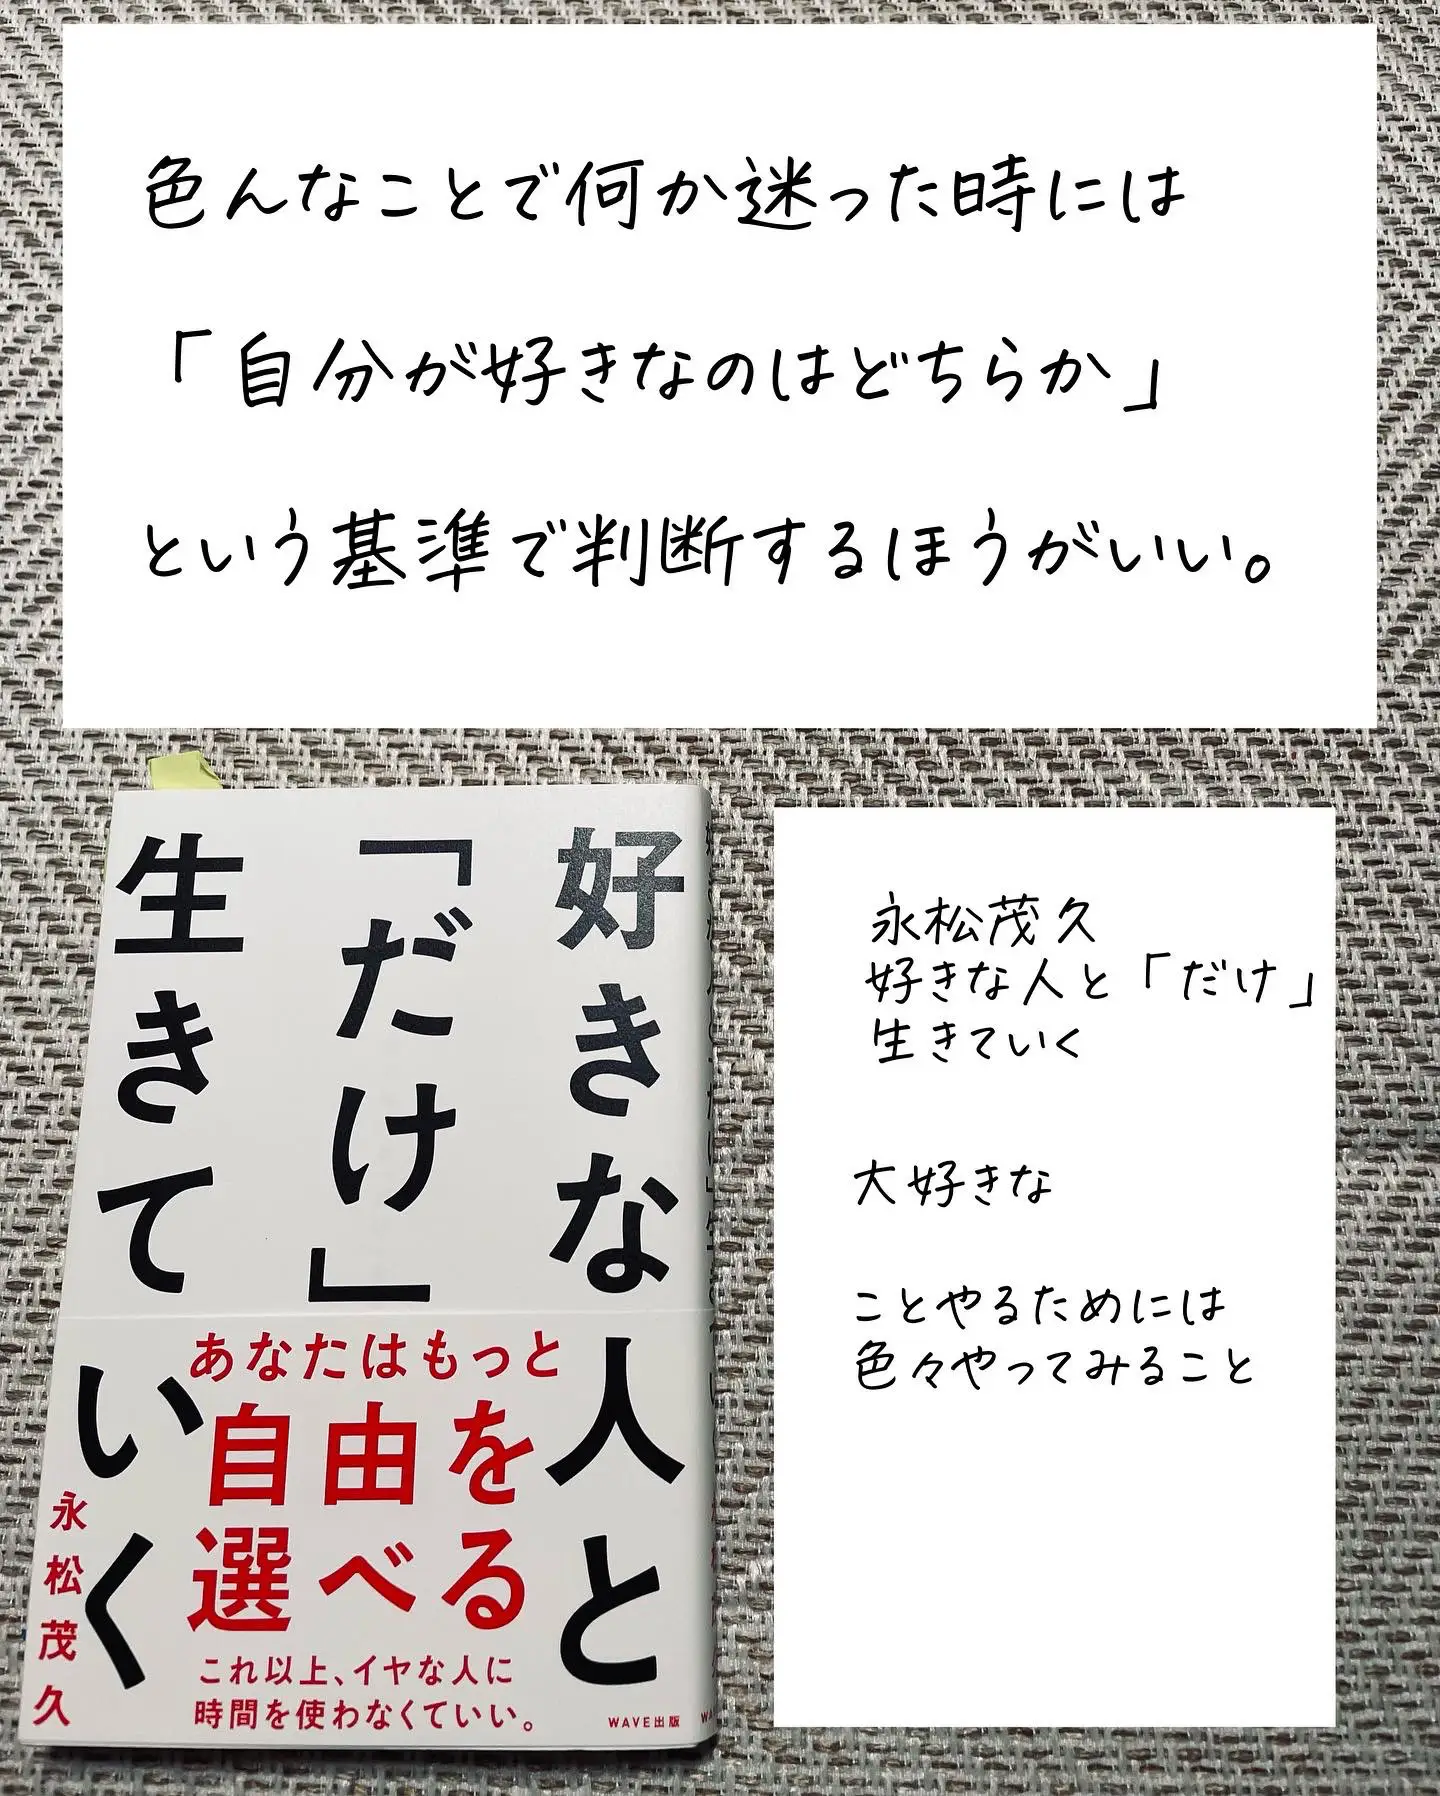 色んなことで何か迷った時には
「自分が好きなのはどちらか」
という基準で判断するほうがいい。
好きな人と
「だけ」
生きていく
永松茂久
あなたはもっと
自由を
選べる
これ以上、イヤな人に
時間を使わなくていい。
WAVE出版
永松茂久
好きな人と「だけ」
生きていく
大好きな
ことやるためには
色々やってみること